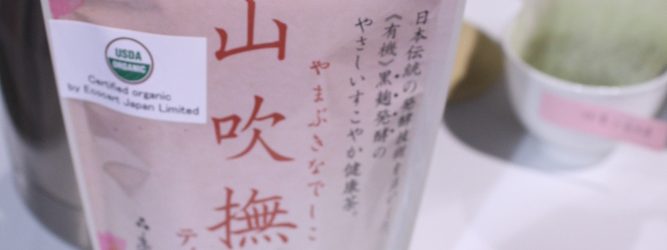 USDA
ORGANIC
Certified organic
by Ecocert Japan Limited
日本伝統の発酵技術を
《有機》黒麹発酵の
やさしいすこやか健康茶。
やまぶきなでしこ
山吹撫